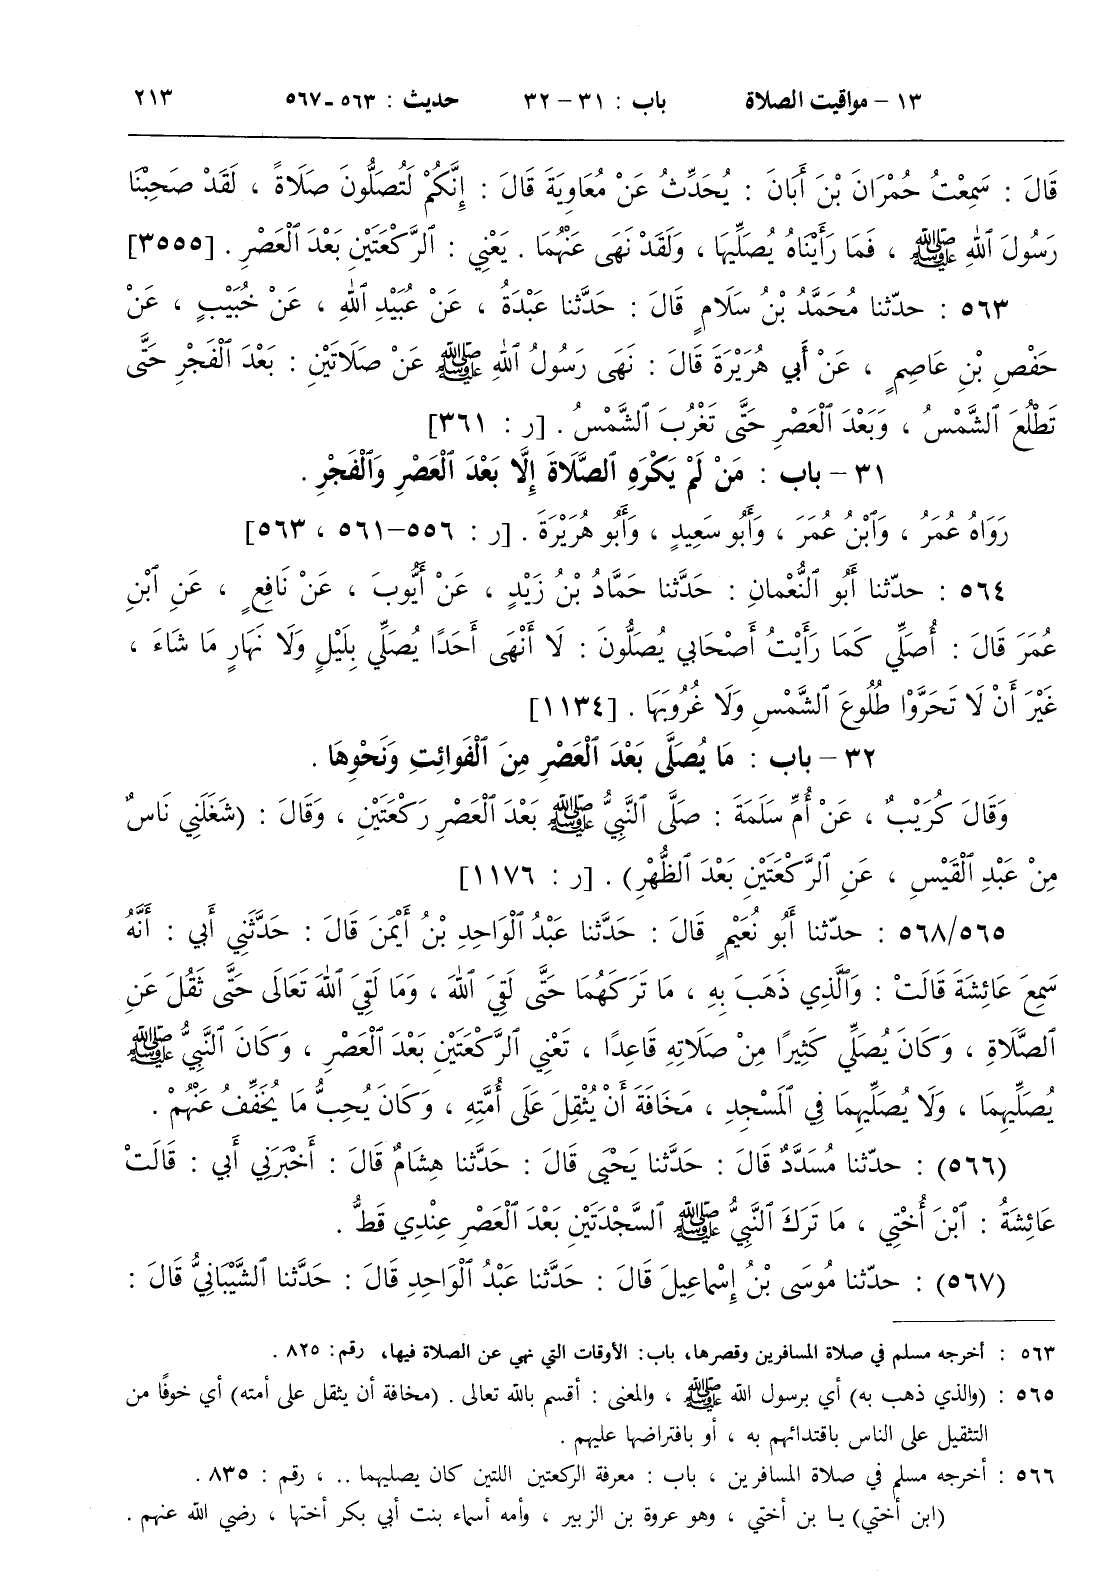 ١٣ – مواقيت الصلاة باب : ٣١ – ٣٢ حديث : ٥٦٣ ـ ٥٦٧ ٢١٣
قَالَ : سَمِعْتُ حُمْرَانَ بْنَ أَبَانَ : يُحَدِّثُ عَنْ مُعَاوِيَةَ قَالَ : إِنَّكُمْ لَتُصَلُّونَ صَلَاةً ، لَقَدْ صَحِبْنَا
رَسُولَ ٱللهِ ﷺ ، فَمَا رَأَيْنَاهُ يُصَلِّيهَا ، وَلَقَدْ نَهَى عَنْهُمَا . يَعْنِي : ٱلرَّكْعَتَيْنِ بَعْدَ ٱلْعَصْرِ . [٣٥٥٥]
٥٦٣ : حدّثنا مُحَمَّدُ بْنُ سَلَامٍ قَالَ : حَدَّثَنا عَبْدَةُ ، عَنْ عُبَيْدِ ٱللهِ ، عَنْ خُبَيْبٍ ، عَنْ
حَفْصِ بْنِ عَاصِمٍ ، عَنْ أَبِي هُرَيْرَةَ قَالَ : نَهَى رَسُولُ ٱللهِ ﷺ عَنْ صَلَاتَيْنِ : بَعْدَ ٱلْفَجْرِ حَتَّى
تَطْلُعَ ٱلشَّمْسُ ، وَبَعْدَ ٱلْعَصْرِ حَتَّى تَغْرُبَ ٱلشَّمْسُ . [ر : ٣٦١]
٣١ – باب : مَنْ لَمْ يَكْرَهِ ٱلصَّلَاةَ إِلَّا بَعْدَ ٱلْعَصْرِ وَٱلْفَجْرِ .
رَوَاهُ عُمَرُ ، وَٱبْنُ عُمَرَ ، وَأَبُو سَعِيدٍ ، وَأَبُو هُرَيْرَةَ . [ر : ٥٥٦–٥٦١ ، ٥٦٣]
٥٦٤ : حدّثنا أَبُو ٱلنُّعْمانِ : حَدَّثَنا حَمَّادُ بْنُ زَيْدٍ ، عَنْ أَيُّوبَ ، عَنْ نَافِعٍ ، عَنِ ٱبْنِ
عُمَرَ قَالَ : أُصَلِّي كَمَا رَأَيْتُ أَصْحَابِي يُصَلُّونَ : لَا أَنْهَى أَحَدًا يُصَلِّي بِلَيْلٍ وَلَا نَهَارٍ مَا شَاءَ ،
غَيْرَ أَنْ لَا تَحَرَّوْا طُلُوعَ ٱلشَّمْسِ وَلَا غُرُوبَهَا . [١١٣٤]
٣٢ – باب : مَا يُصَلَّى بَعْدَ ٱلْعَصْرِ مِنَ ٱلْفَوائِتِ وَنَحْوِهَا .
وَقَالَ كُرَيْبٌ ، عَنْ أُمِّ سَلَمَةَ : صَلَّى ٱلنَّبِيُّ ﷺ بَعْدَ ٱلْعَصْرِ رَكْعَتَيْنِ ، وَقَالَ : (شَغَلَنِي نَاسٌ
مِنْ عَبْدِ ٱلْقَيْسِ ، عَنِ ٱلرَّكْعَتَيْنِ بَعْدَ ٱلظُّهْرِ) . [ر : ١١٧٦]
٥٦٨/٥٦٥ : حدّثنا أَبُو نُعَيْمٍ قَالَ : حَدَّثَنا عَبْدُ ٱلْوَاحِدِ بْنُ أَيْمَنَ قَالَ : حَدَّثَنِي أَبِي : أَنَّهُ
سَمِعَ عَائِشَةَ قَالَتْ : وَٱلَّذِي ذَهَبَ بِهِ ، مَا تَرَكَهُمَا حَتَّى لَقِيَ ٱللهَ ، وَمَا لَقِيَ ٱللهَ تَعَالَى حَتَّى ثَقُلَ عَنِ
ٱلصَّلَاةِ ، وَكَانَ يُصَلِّي كَثِيرًا مِنْ صَلَاتِهِ قَاعِدًا ، تَعْنِي ٱلرَّكْعَتَيْنِ بَعْدَ ٱلْعَصْرِ ، وَكَانَ ٱلنَّبِيُّ ﷺ
يُصَلِّيهِمَا ، وَلَا يُصَلِّيهِمَا فِي ٱلْمَسْجِدِ ، مَخَافَةَ أَنْ يُثْقِلَ عَلَى أُمَّتِهِ ، وَكَانَ يُحِبُّ مَا يُخَفِّفُ عَنْهُمْ .
(٥٦٦) : حدّثنا مُسَدَّدٌ قَالَ : حَدَّثَنا يَحْيَى قَالَ : حَدَّثَنا هِشَامٌ قَالَ : أَخْبَرَنِي أَبِي : قَالَتْ
عَائِشَةُ : ٱبْنَ أُخْتِي ، مَا تَرَكَ ٱلنَّبِيُّ ﷺ ٱلسَّجْدَتَيْنِ بَعْدَ ٱلْعَصْرِ عِنْدِي قَطُّ .
(٥٦٧) : حدّثنا مُوسَى بْنُ إِسْماعِيلَ قَالَ : حَدَّثَنا عَبْدُ ٱلْوَاحِدِ قَالَ : حَدَّثَنا ٱلشَّيْبَانِيُّ قَالَ :
٥٦٣ : أخرجه مسلم في صلاة المسافرين وقصرها، باب: الأوقات التي نهي عن الصلاة فيها، رقم: ٨٢٥ .
٥٦٥ : (والذي ذهب به) أي برسول الله ﷺ ، والمعنى : أقسم بالله تعالى . (مخافة أن يثقل على أمته) أي خوفًا من
التثقيل على الناس باقتدائهم به ، أو بافتراضها عليهم .
٥٦٦ : أخرجه مسلم في صلاة المسافرين ، باب : معرفة الركعتين اللتين كان يصليهما .. ، رقم : ٨٣٥ .
(ابن أختي) يا بن أختي ، وهو عروة بن الزبير ، وأمه أسماء بنت أبي بكر أختها ، رضي الله عنهم .